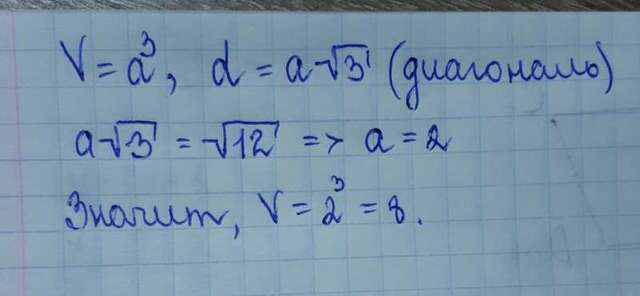 V = a³, d = a√3 (диагональ)
a√3 = √12 => a = 2
Значит, V = 2³ = 8.